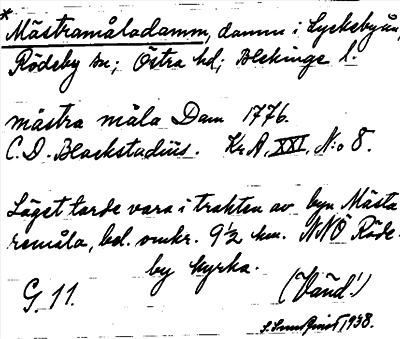 * Mästramåladamm, damm i Lyckebyån,
Rödeby sn; Östra hd; Blekinge l.
mästra måla Dam 1776.
C. D. Blackstadius. Kr.A. XXI, N:o 8.
Läget torde vara i trakten av byn Mästa
remåla, bel. omkr. 9 1/2 km. NNÖ Röde-
by kyrka.
G. 11. (Vänd!)
1938.